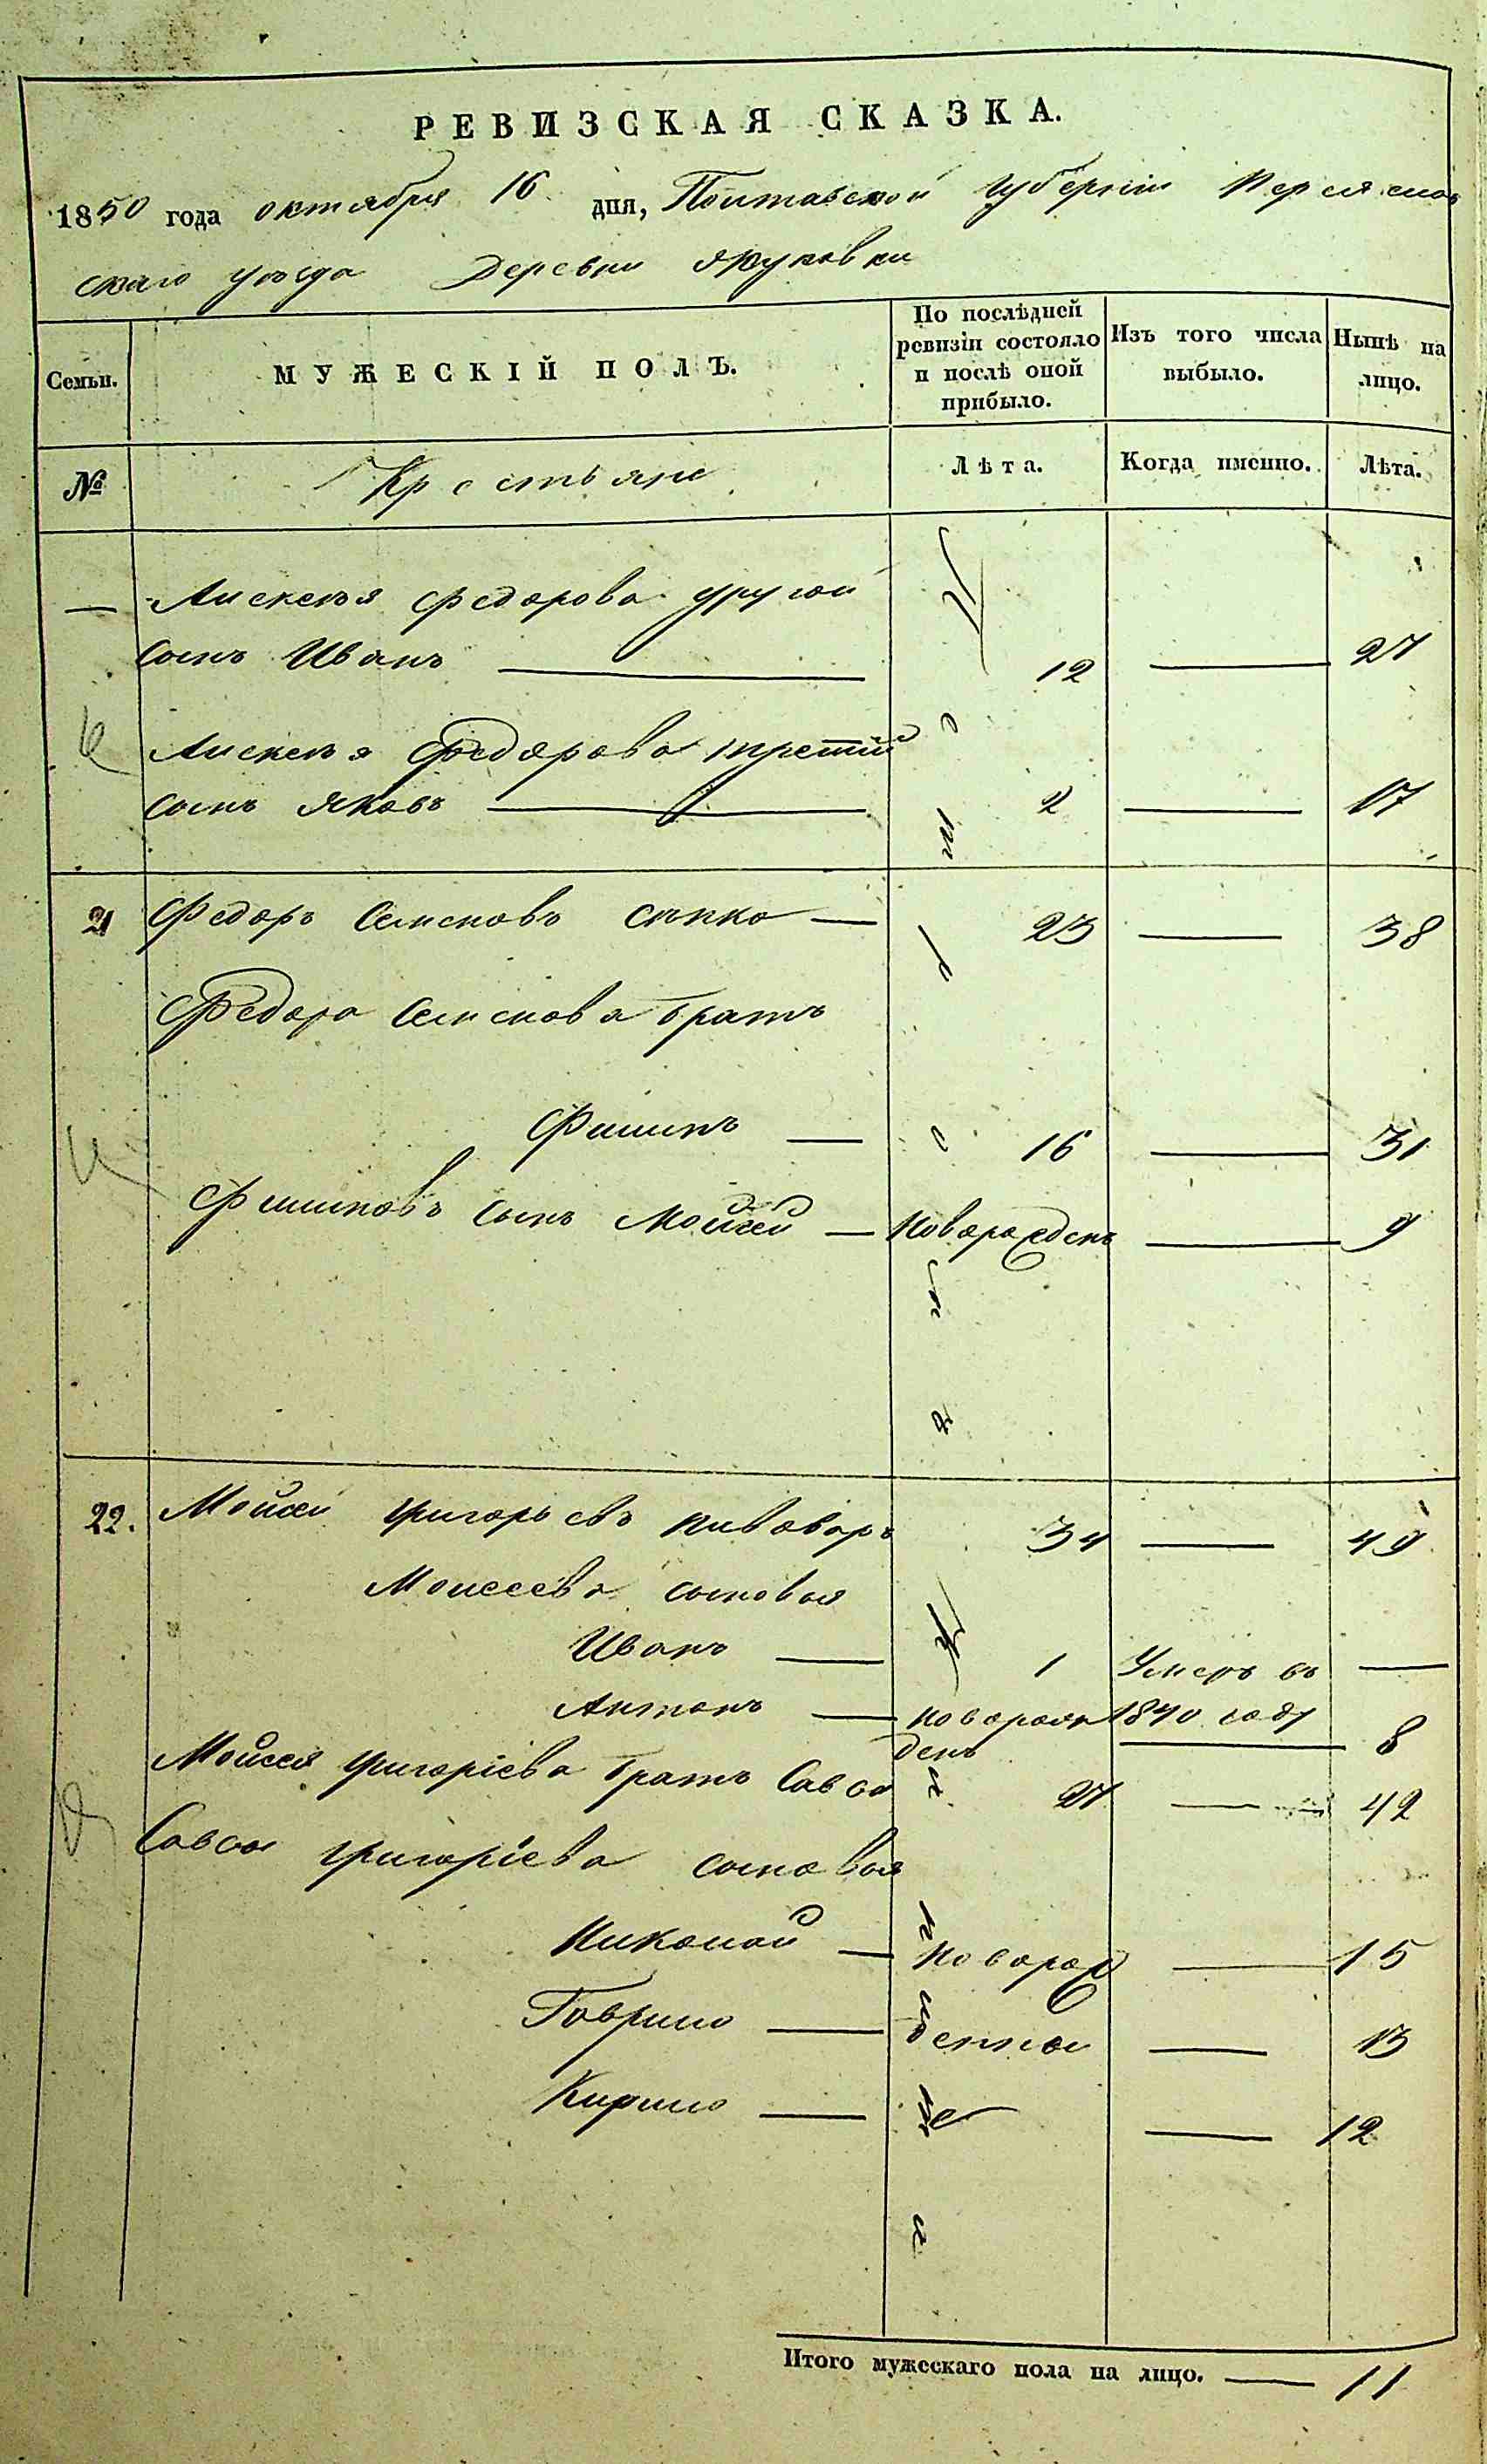 РЕВИЗСКАЯ СКАЗКА.
1850 года октября 16 дня, Полтавской Губерніи Переяслов
скаго уезда Деревни Жуковки
Семьи.
МУЖЕСКІЙ ПОЛЪ.
По послѣдней
ревизіи состояло
и послѣ оной
прибыло.
Изъ того числа
выбыло.
Нынѣ на
лицо.
№
Крестьяне
Лѣта.
Когда именно.
Лѣта.
— Алексея Федорова другой
сынъ Иванъ — 12 — 27
Алексея Федорова третий
сынъ Яковъ — 2 — 17
21 Федоръ Семеновъ — 23 — 38
Федора Семенова братъ
Филипъ — 16 — 31
Филиповъ сынъ Мойсей — Новорожденъ — 9
22. Мойсей Григорьевъ Пивоваръ 34 — 49
Моисеева сыновья
Иванъ — 1 Умеръ въ —
Антонъ — новорож 1840 году
денъ — 8
Мойсея Григоріева братъ Савва 27 — 42
Саввы Григоріева сыновья
Николай — Новорож — 15
Гаврило — денны — 13
Кирило — — 12
Итого мужескаго пола на лицо. — 11